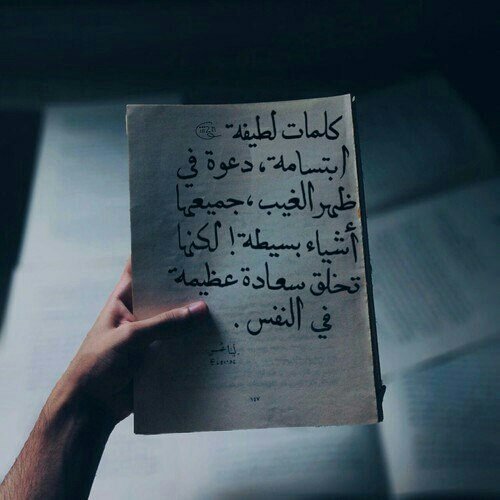 كلمات لطيفة
ابتسامة، دعوة في
ظهر الغيب، جميعها
أشياء بسيطة! لكنها
تخلق سعادة عظيمة
في النفس.
١٤٧